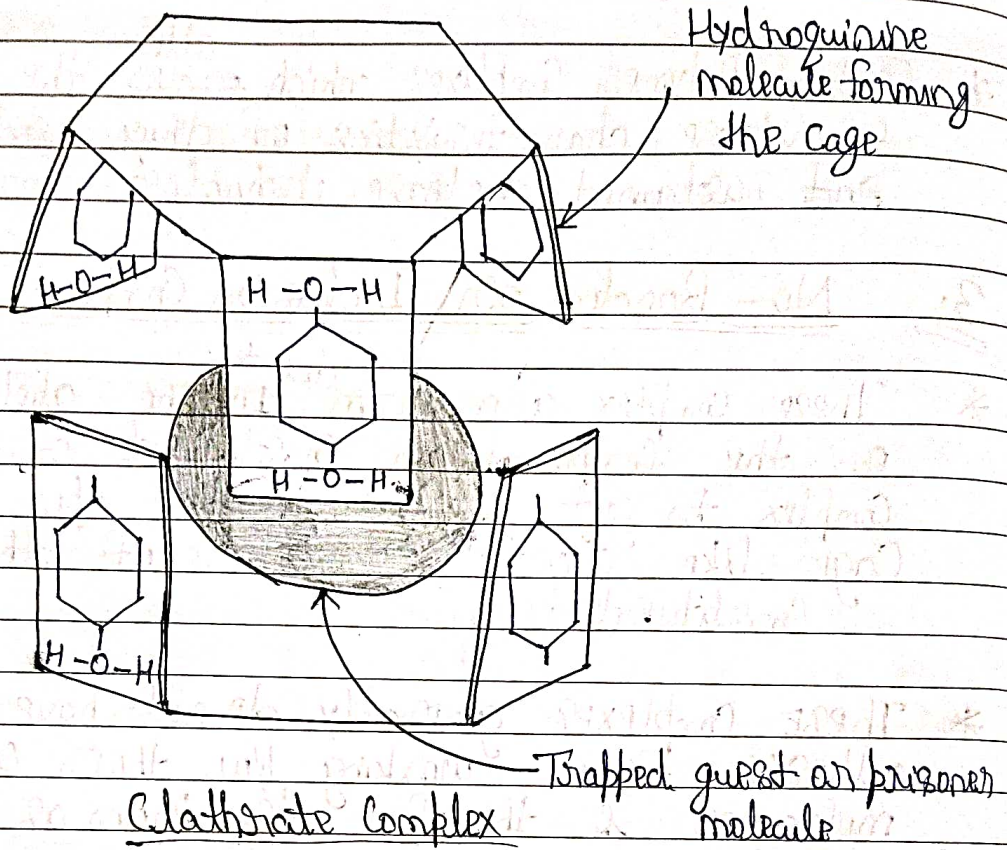 Hydroquinine
molecule forming
the cage
H-O-H
H-O-H
H-O-H
H-O-H
Trapped guest or prisoner
molecule
Clathrate Complex